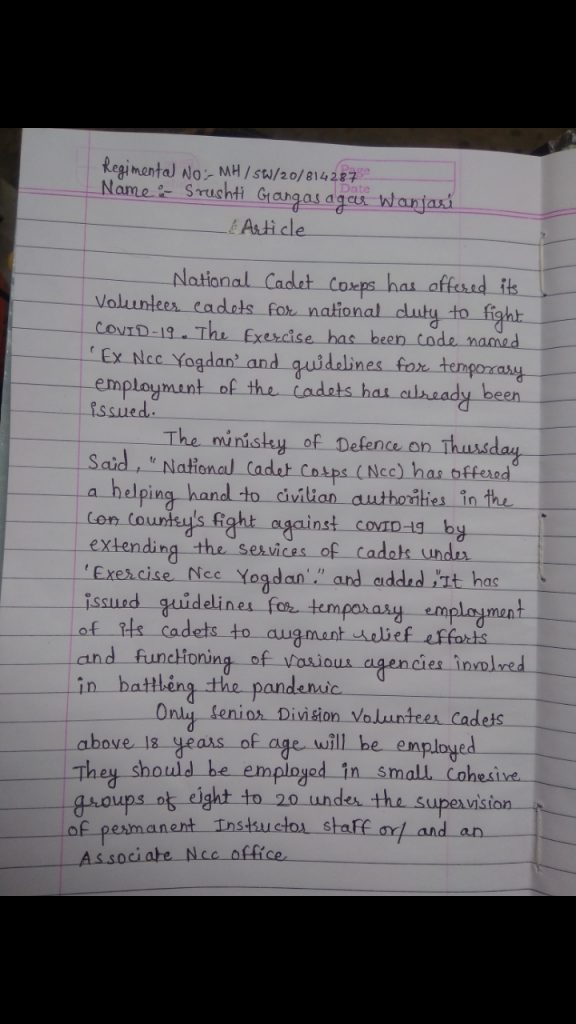 Regimental No:- MH/SW/20/814287
Page
Name :- Srushti Gangasagar Wanjari
Date
Article
National Cadet Corps has offered its
Volunteer cadets for national duty to fight
COVID-19. The Exercise has been code named
'Ex Ncc Yogdan' and guidelines for temporary
employment of the cadets has already been
issued.
The ministry of Defence on Thursday
Said, "National Cadet Corps (Ncc) has offered
a helping hand to civilian authorities in the
Con Country's fight against COVID-19 by
extending the services of cadets under
'Exercise Ncc Yogdan'." and added, "It has
issued guidelines for temporary employment
of its cadets to augment relief efforts
and functioning of various agencies involved
in battling the pandemic
Only Senior Division Volunteer Cadets
above 18 years of age will be employed
They should be employed in small Cohesive
groups of eight to 20 under the supervision
of permanent Instructor staff or/ and an
Associate Ncc office